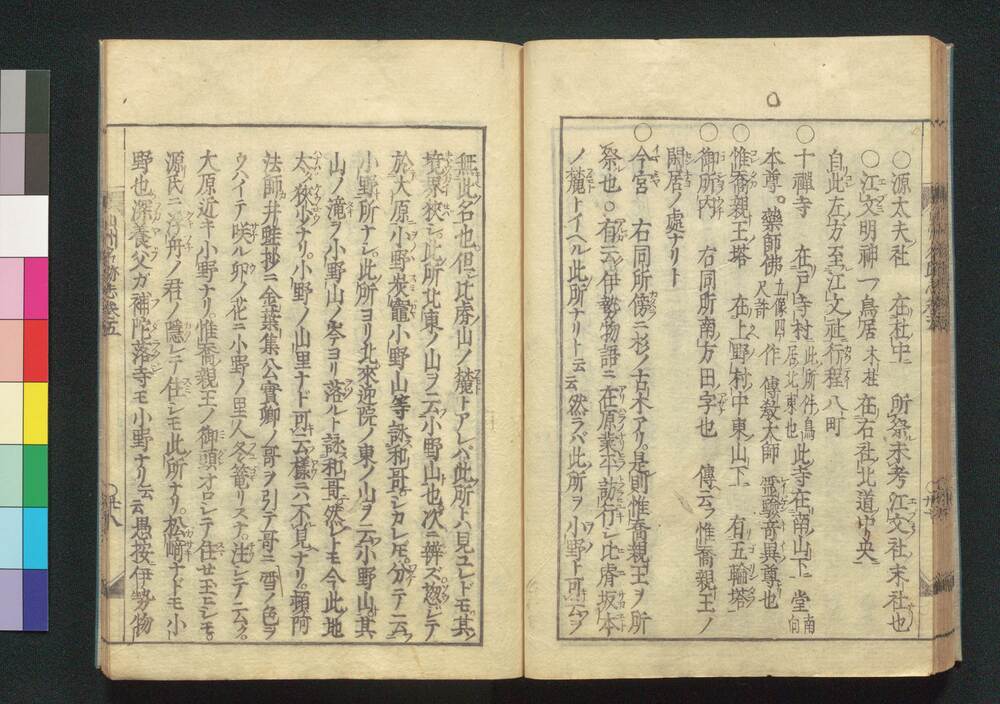 ○源太夫社 在社中 所祭未考江文社末社也
○江文明神一ノ鳥居 木柱 在右社北道中ノ央
自此左方至江文社行程八町
○十禪寺 在戸寺村 此所件鳥居北東也 此寺在南山下 堂南向
本尊。藥師佛 立像四尺許 作 傳敎大師 霊驗奇異尊也
○惟喬親王塔 在上野村中東山下 有五輪塔
○御所内 右同所南ノ方田ノ字也 傳云フ惟喬親王ノ
閑居ノ處ナリト
○今宮 右同所傍ニ杉ノ古木アリ。是則惟喬親王ヲ所
祭也。○有云伊勢物語ニ在原業平訪行シ比睿坂本
ノ麓トイヘル此所ナリト云云然ラバ此所ヲ小野ト可云ヲ
無此名也但シ比睿山ノ麓トアレバ此所トハ見エレドモ其
境界狹シ此所北東ノ山ヲ云小野山也次ニ辨ズ惣シテ
於大原小野炭竈小野山等詠和哥シカレドモ分テ云フ
小野所ナシ此所ヨリ北來迎院ノ東ノ山ヲ云小野山其
山ノ滝ヲ小野山ノ岑ヨリ落ルト詠和哥然レドモ今此地
太タ狹少ナリ。小野ノ山里ナド可云樣ニハ不見ナリ。頓阿
法師井蛙抄ニ金葉集公實卿ノ哥ヲ引テ哥ニ雪ノ色ヲ
ウハイテ咲ル卯ノ花ニ小野ノ里人冬籠リスナ。注シテ云ク。
大原近キ小野ナリ。惟喬親王ノ御頭オロシテ住セ玉ヒシモ。
源氏ニ浮舟ノ君ノ隱レテ住シモ此所ナリ。松﨑ナドモ小
野也深養父ガ補陀落寺モ小野ナリ云云愚按伊勢物
山州名跡志卷五
○廿八